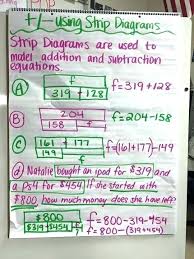 +/- using Strip Diagrams
Strip Diagrams are used to
model addition and subtraction
equations.
A
f
319 + 128
f=319+128
B
204
158 f
f=204-158
C
161 + 177
149 f
f=(161+177)-149
d) Natalie bought an ipod for $319 and
a PS4 for $454. If she started with
$800, how much money does she have left?
$800
$319+$454 f
f=800-319-454
f=800-(319+454)